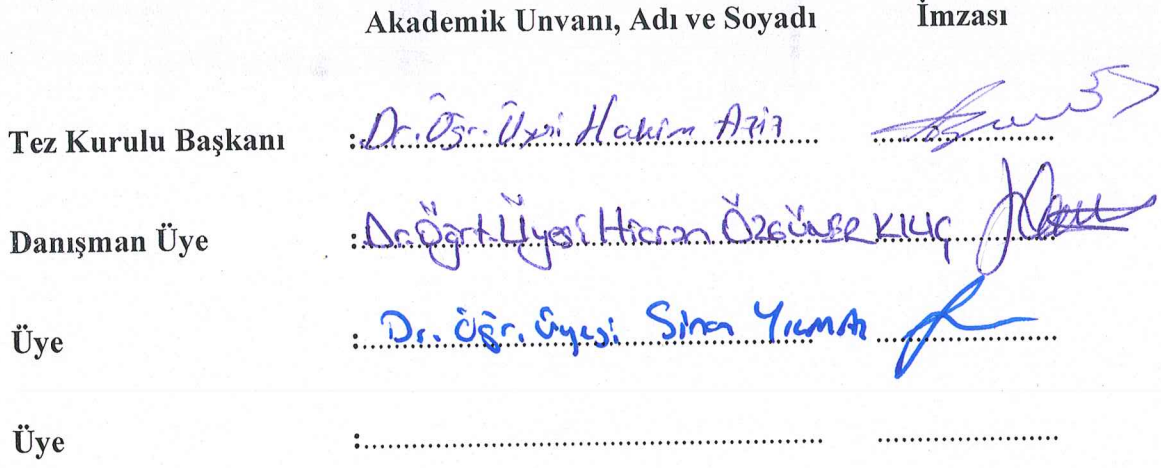 Akademik Unvanı, Adı ve Soyadı İmzası
Tez Kurulu Başkanı : Dr. Öğr. Üyesi Hakim Aziz
Danışman Üye : Dr. Öğrt. Üyesi Hicran ÖZGÜNER KILIÇ
Üye : Dr. Öğr. Üyesi Sinan YILMAZ
Üye :